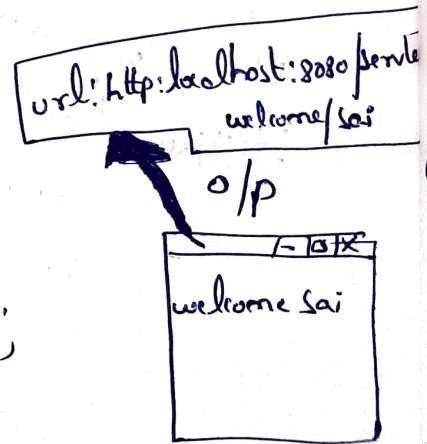 url: http:localhost:8080/servle
welcome/sai
o/p
- □ X
welcome sai
;